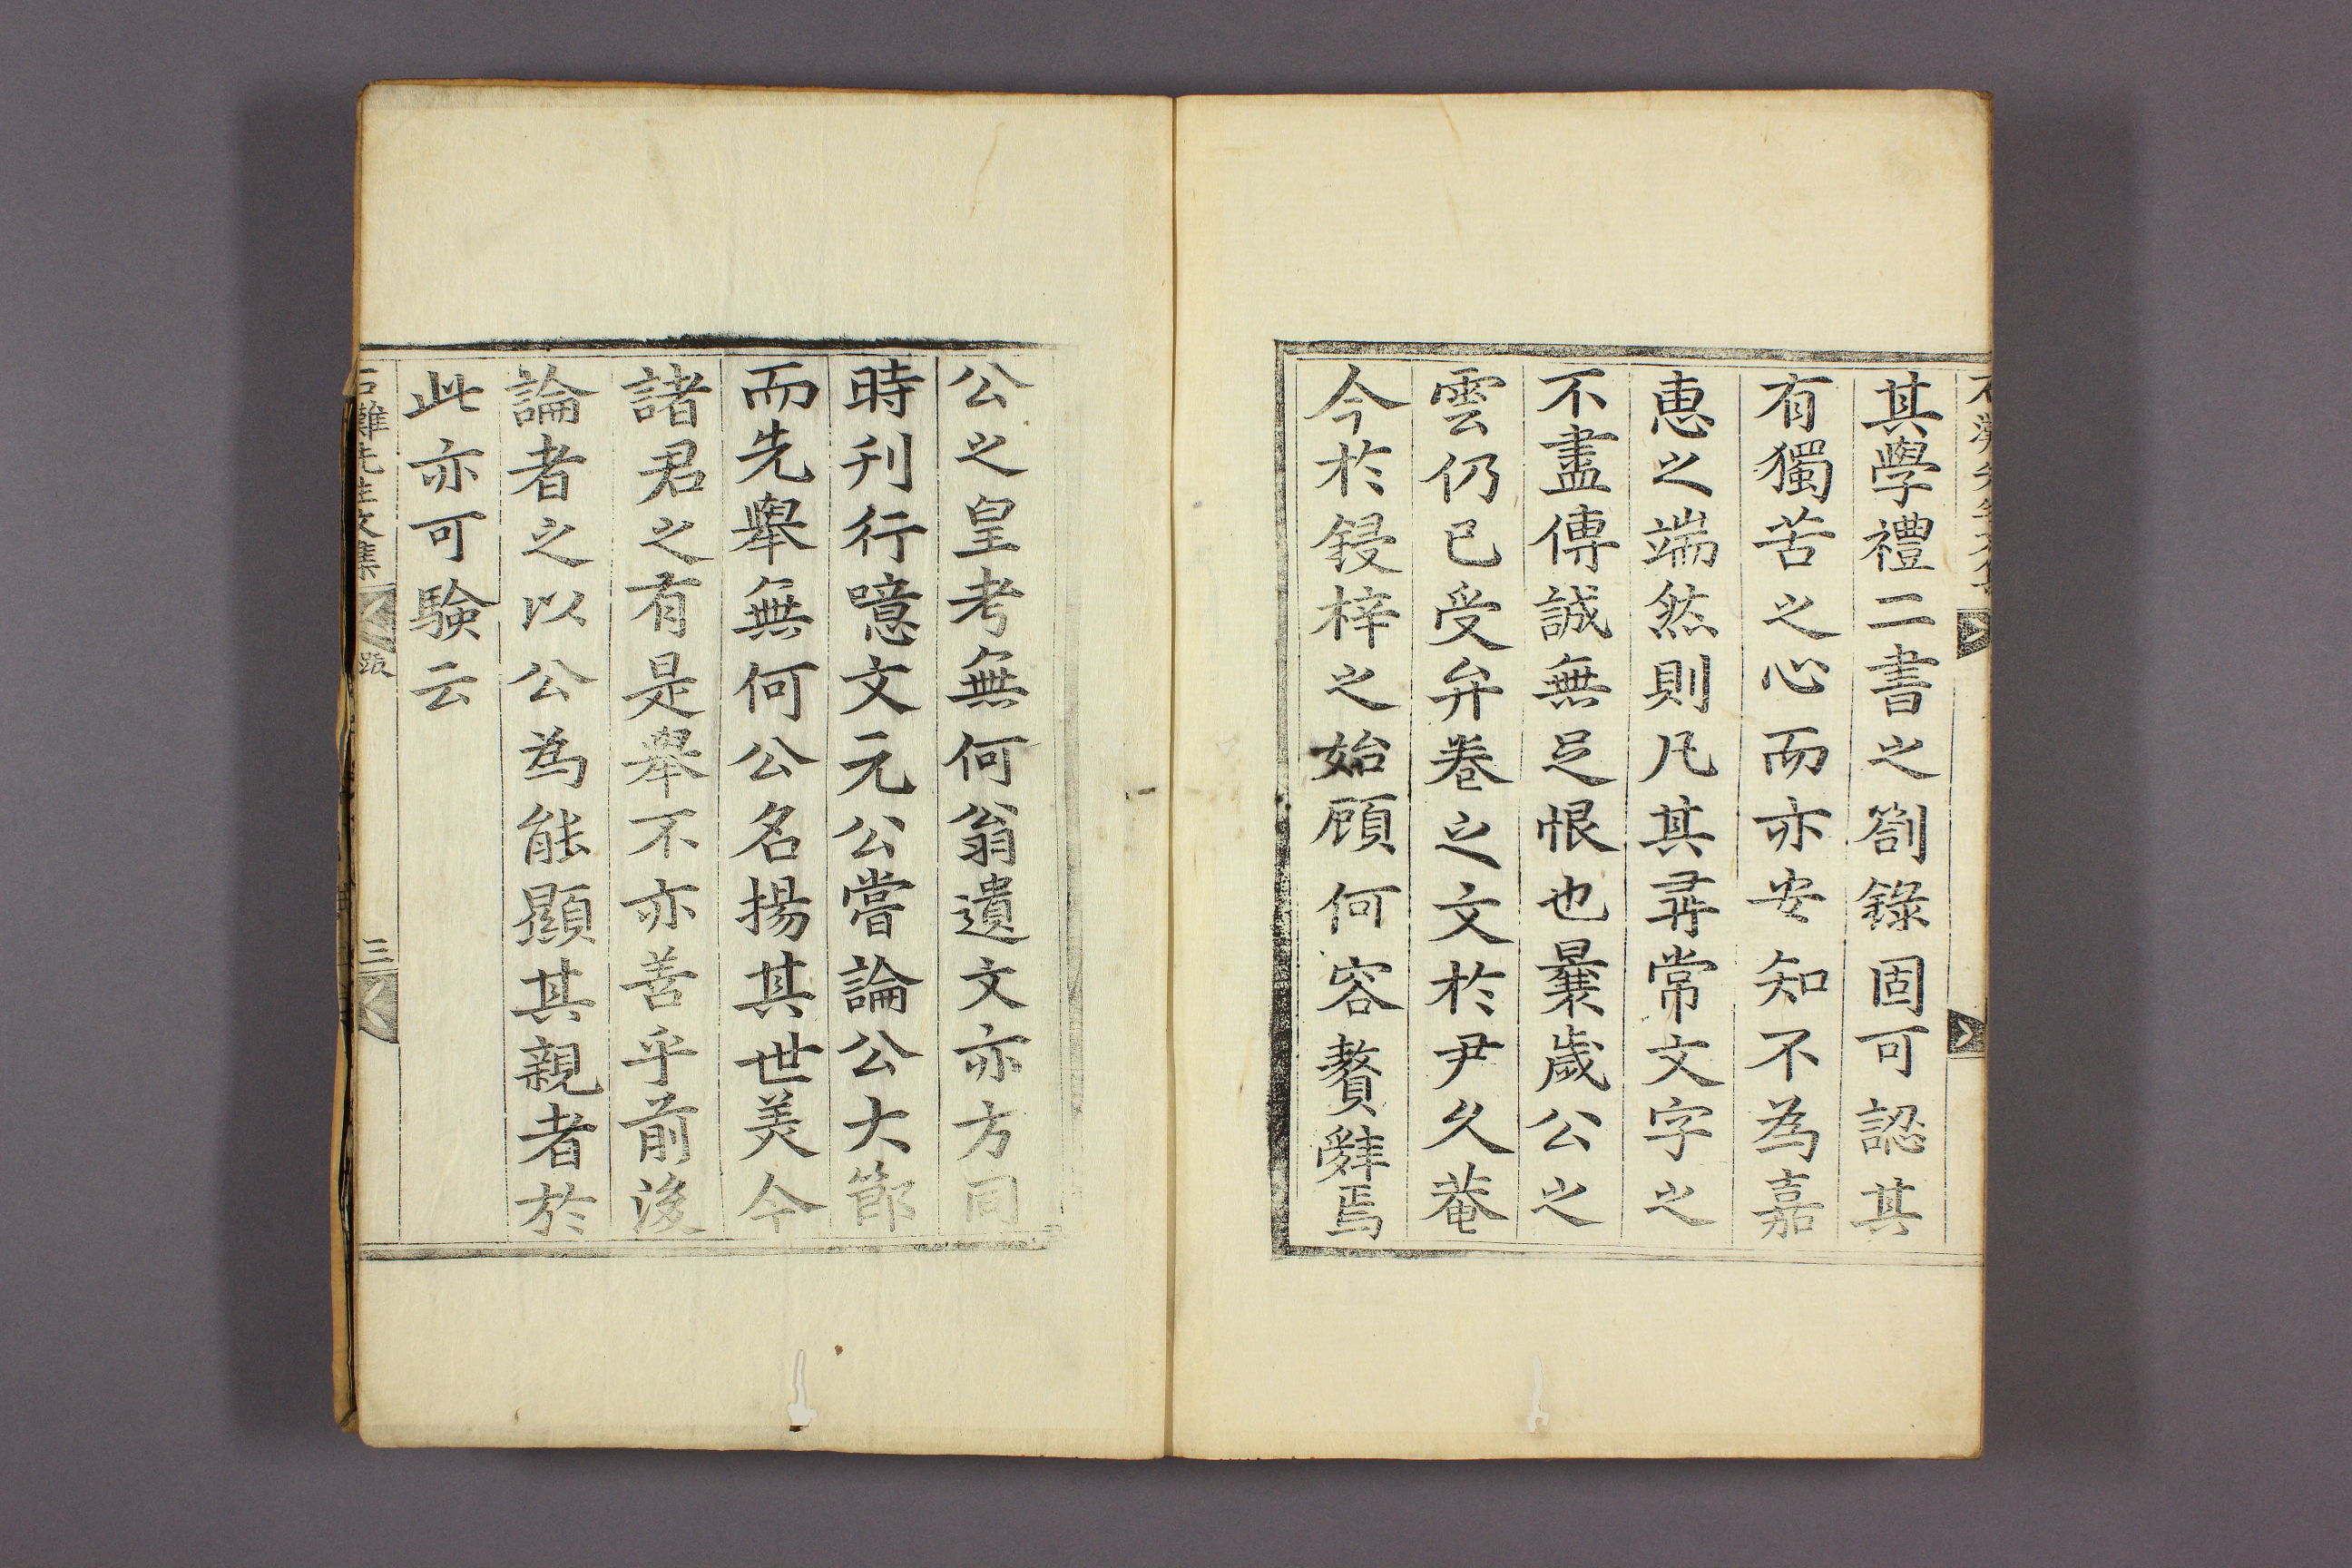 其學禮二書之劄錄固可認其
有獨苦之心而亦安知不為嘉
惠之端然則凡其尋常文字之
不盡傳誠無足恨也曩歲公之
雲仍已受弁卷之文於尹久菴
今於鋟梓之始顧何容贅辭焉
公之皇考無何翁遺文亦方同
時刊行噫文元公嘗論公大節
而先舉無何公名揚其世美今
諸君之有是舉不亦善乎前後
論者之以公為能顯其親者於
此亦可驗云
先生文集
跋
三